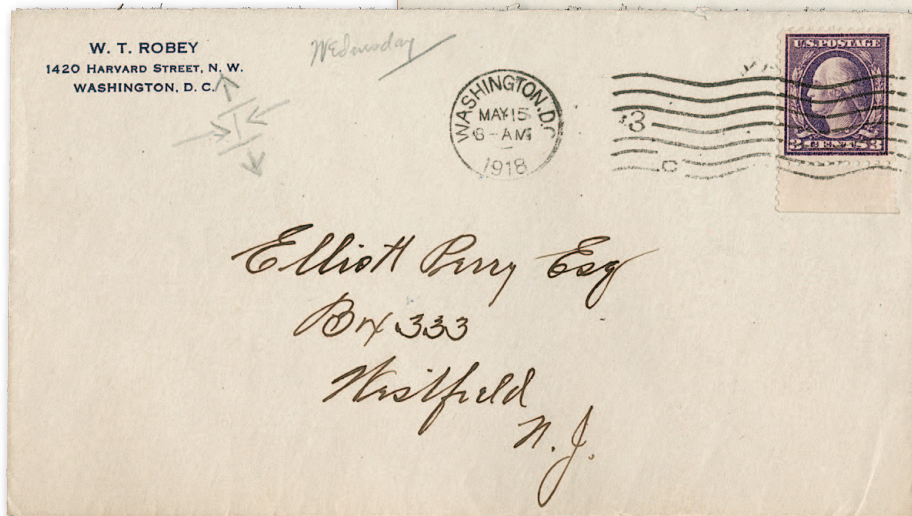 W. T. ROBEY
1420 HARVARD STREET, N. W.
WASHINGTON, D. C.
Wednesday
WASHINGTON, D.C.
MAY 15
6-AM
1918
3
C
U.S. POSTAGE
3 CENTS 3
Elliott Perry Esq
Box 333
Westfield
N. J.